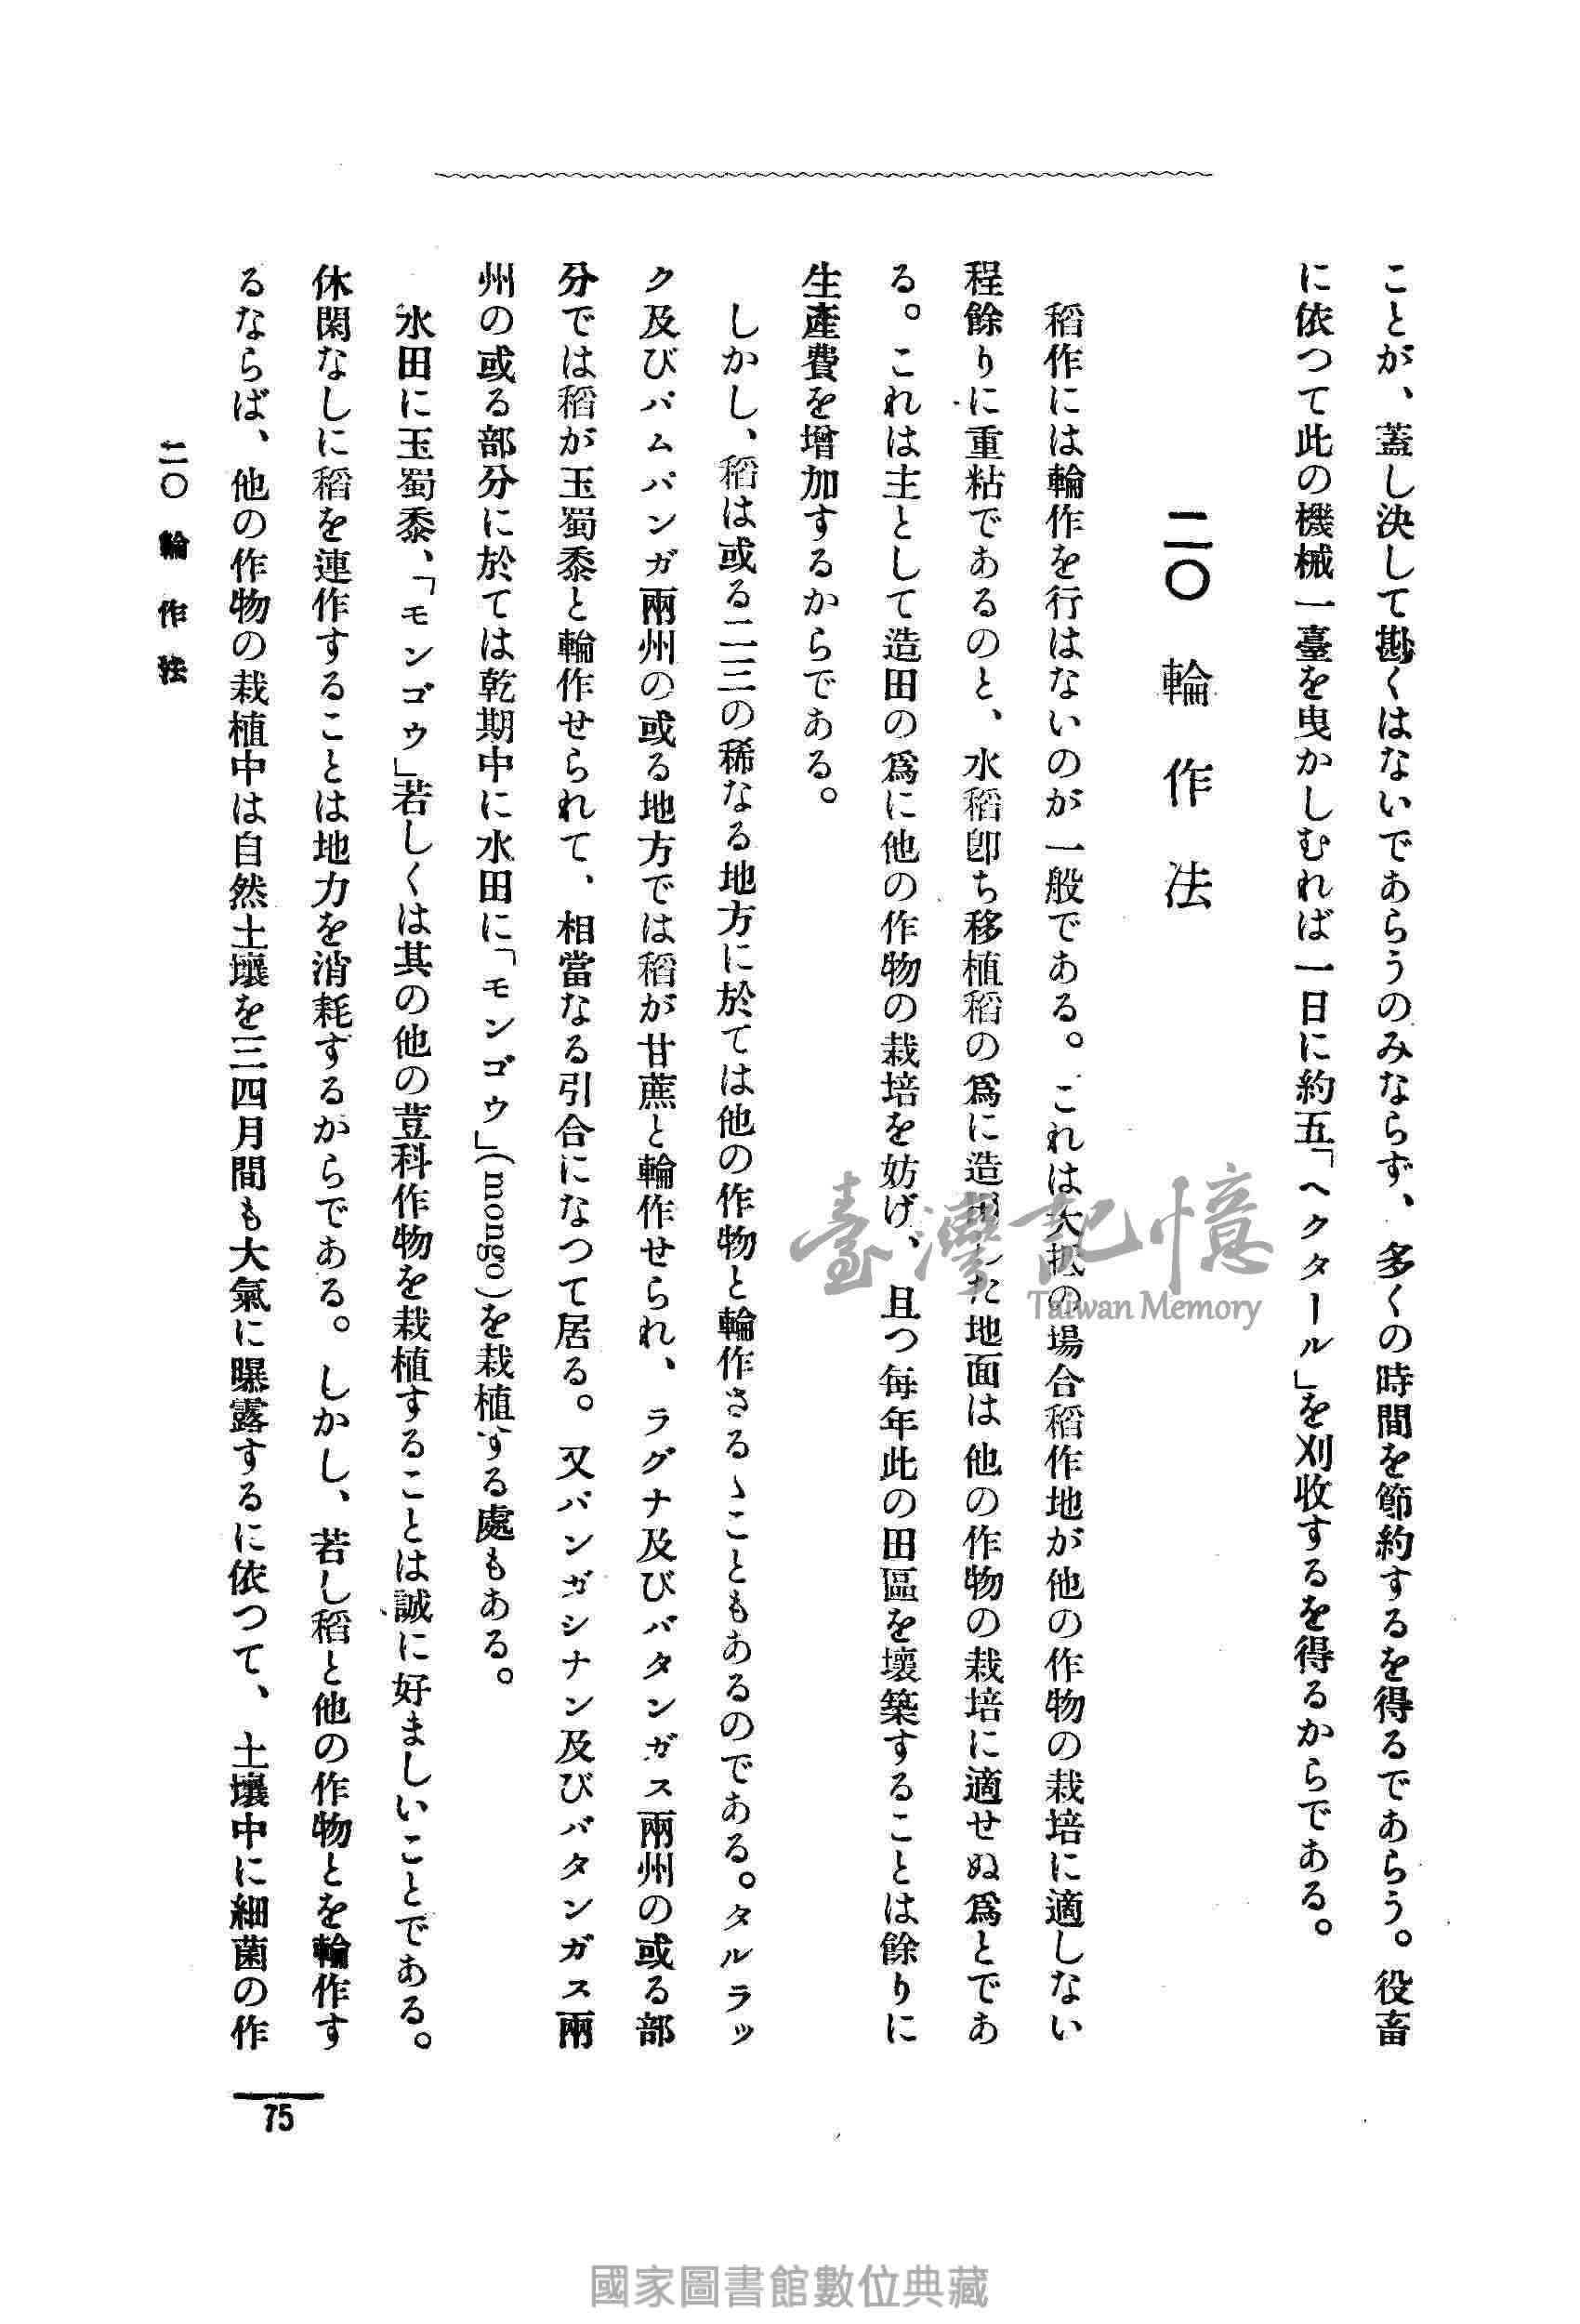 ことが、蓋し決して尠くはないであらうのみならず、多くの時間を節約するを得るであらう。役畜
に依つて此の機械一臺を曳かしむれば一日に約五「ヘクタール」を刈收するを得るからである。
二〇 輪作法
稻作には輪作を行はないのが一般である。これは大抵の場合稻作地が他の作物の栽培に適しない
程餘りに重粘であるのと、水稻卽ち移植稻の爲に造田した地面は他の作物の栽培に適せぬ爲とであ
る。これは主として造田の爲に他の作物の栽培を妨げ、且つ每年此の田區を壞築することは餘りに
生產費を增加するからである。
しかし、稻は或る二三の稀なる地方に於ては他の作物と輪作さるゝこともあるのである。タルラッ
ク及びパムパンガ兩州の或る地方では稻が甘蔗と輪作せられ、ラグナ及びバタンガス兩州の或る部
分では稻が玉蜀黍と輪作せられて、相當なる引合になつて居る。又パンガシナン及びバタンガス兩
州の或る部分に於ては乾期中に水田に「モンゴウ」(mongo)を栽植する處もある。
水田に玉蜀黍、「モンゴウ」若しくは其の他の荳科作物を栽植することは誠に好ましいことである。
休閑なしに稻を連作することは地力を消耗するからである。しかし、若し稻と他の作物とを輪作す
るならば、他の作物の栽植中は自然土壤を三四月間も大氣に曝露するに依つて、土壤中に細菌の作
二〇 輪作法
75
臺灣記憶
Taiwan Memory
國家圖書館數位典藏